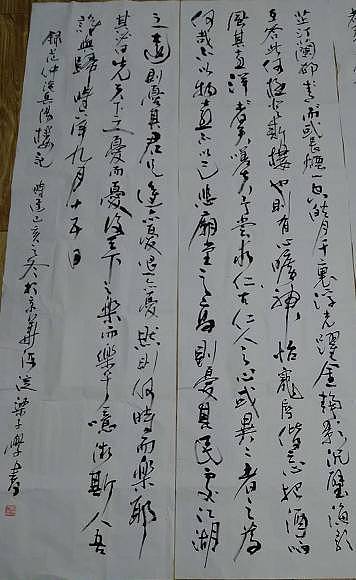 芷汀蘭郁々青々而或長煙一空皓月千里浮光躍金静影沉璧漁歌
互答此何極登斯樓也則有心曠神怡寵辱偕忘把酒臨
風其喜洋洋者矣嗟夫予嘗求古仁人之心或異二者之為
何哉不以物喜不以己悲廟堂之高則憂其民處江湖
之遠則憂其君是進亦憂退亦憂然則何時而樂耶
其必曰先天下之憂而憂後天下之樂而樂乎噫微斯人吾
誰與歸時六年九月十五日
錄范仲淹岳陽樓記 時逢己亥之冬於京華海淀梁子學書